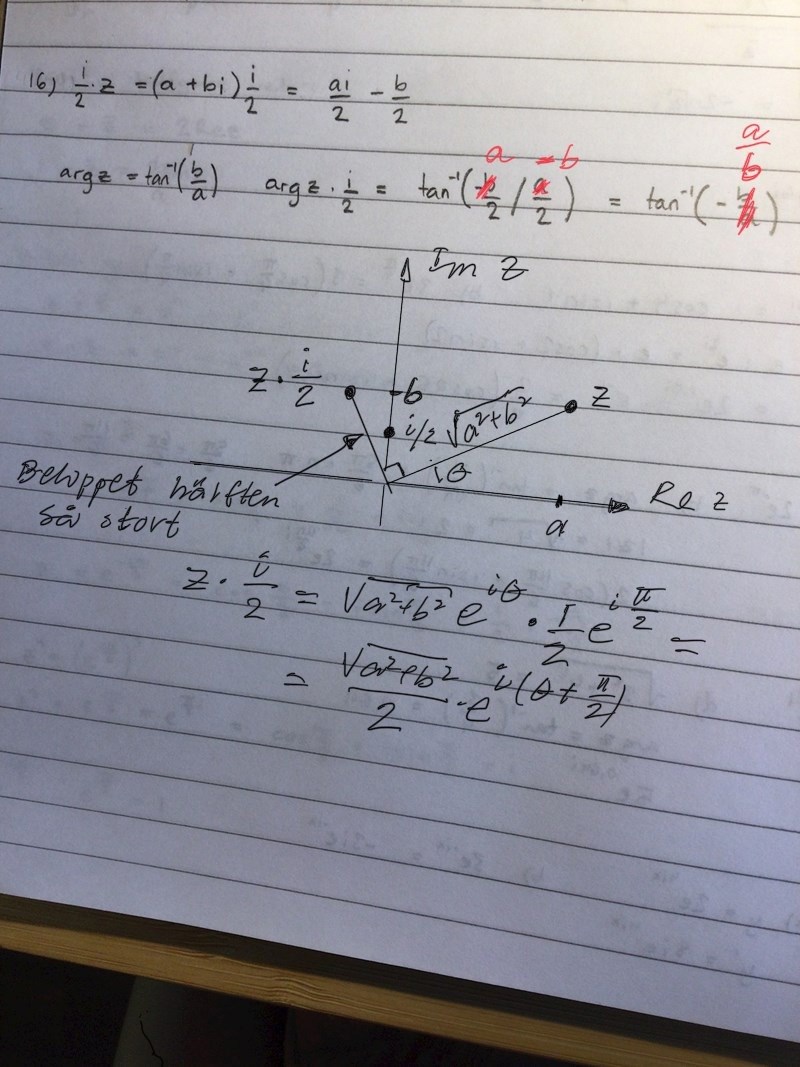 16) i/2 · z = (a + bi) i/2 = ai/2 - b/2
a -b a/b
arg z = tan⁻¹(b/a) arg z · i/2 = tan⁻¹( /2 / /2) = tan⁻¹(-
Im z
z · i/2 b z
i/2 √a²+b²
iθ
Re z
a
Beloppet hälften
så stort
z · i/2 = √a²+b² e^iθ · 1/2 e^i π/2 =
= √a²+b²/2 · e^i(θ + π/2)